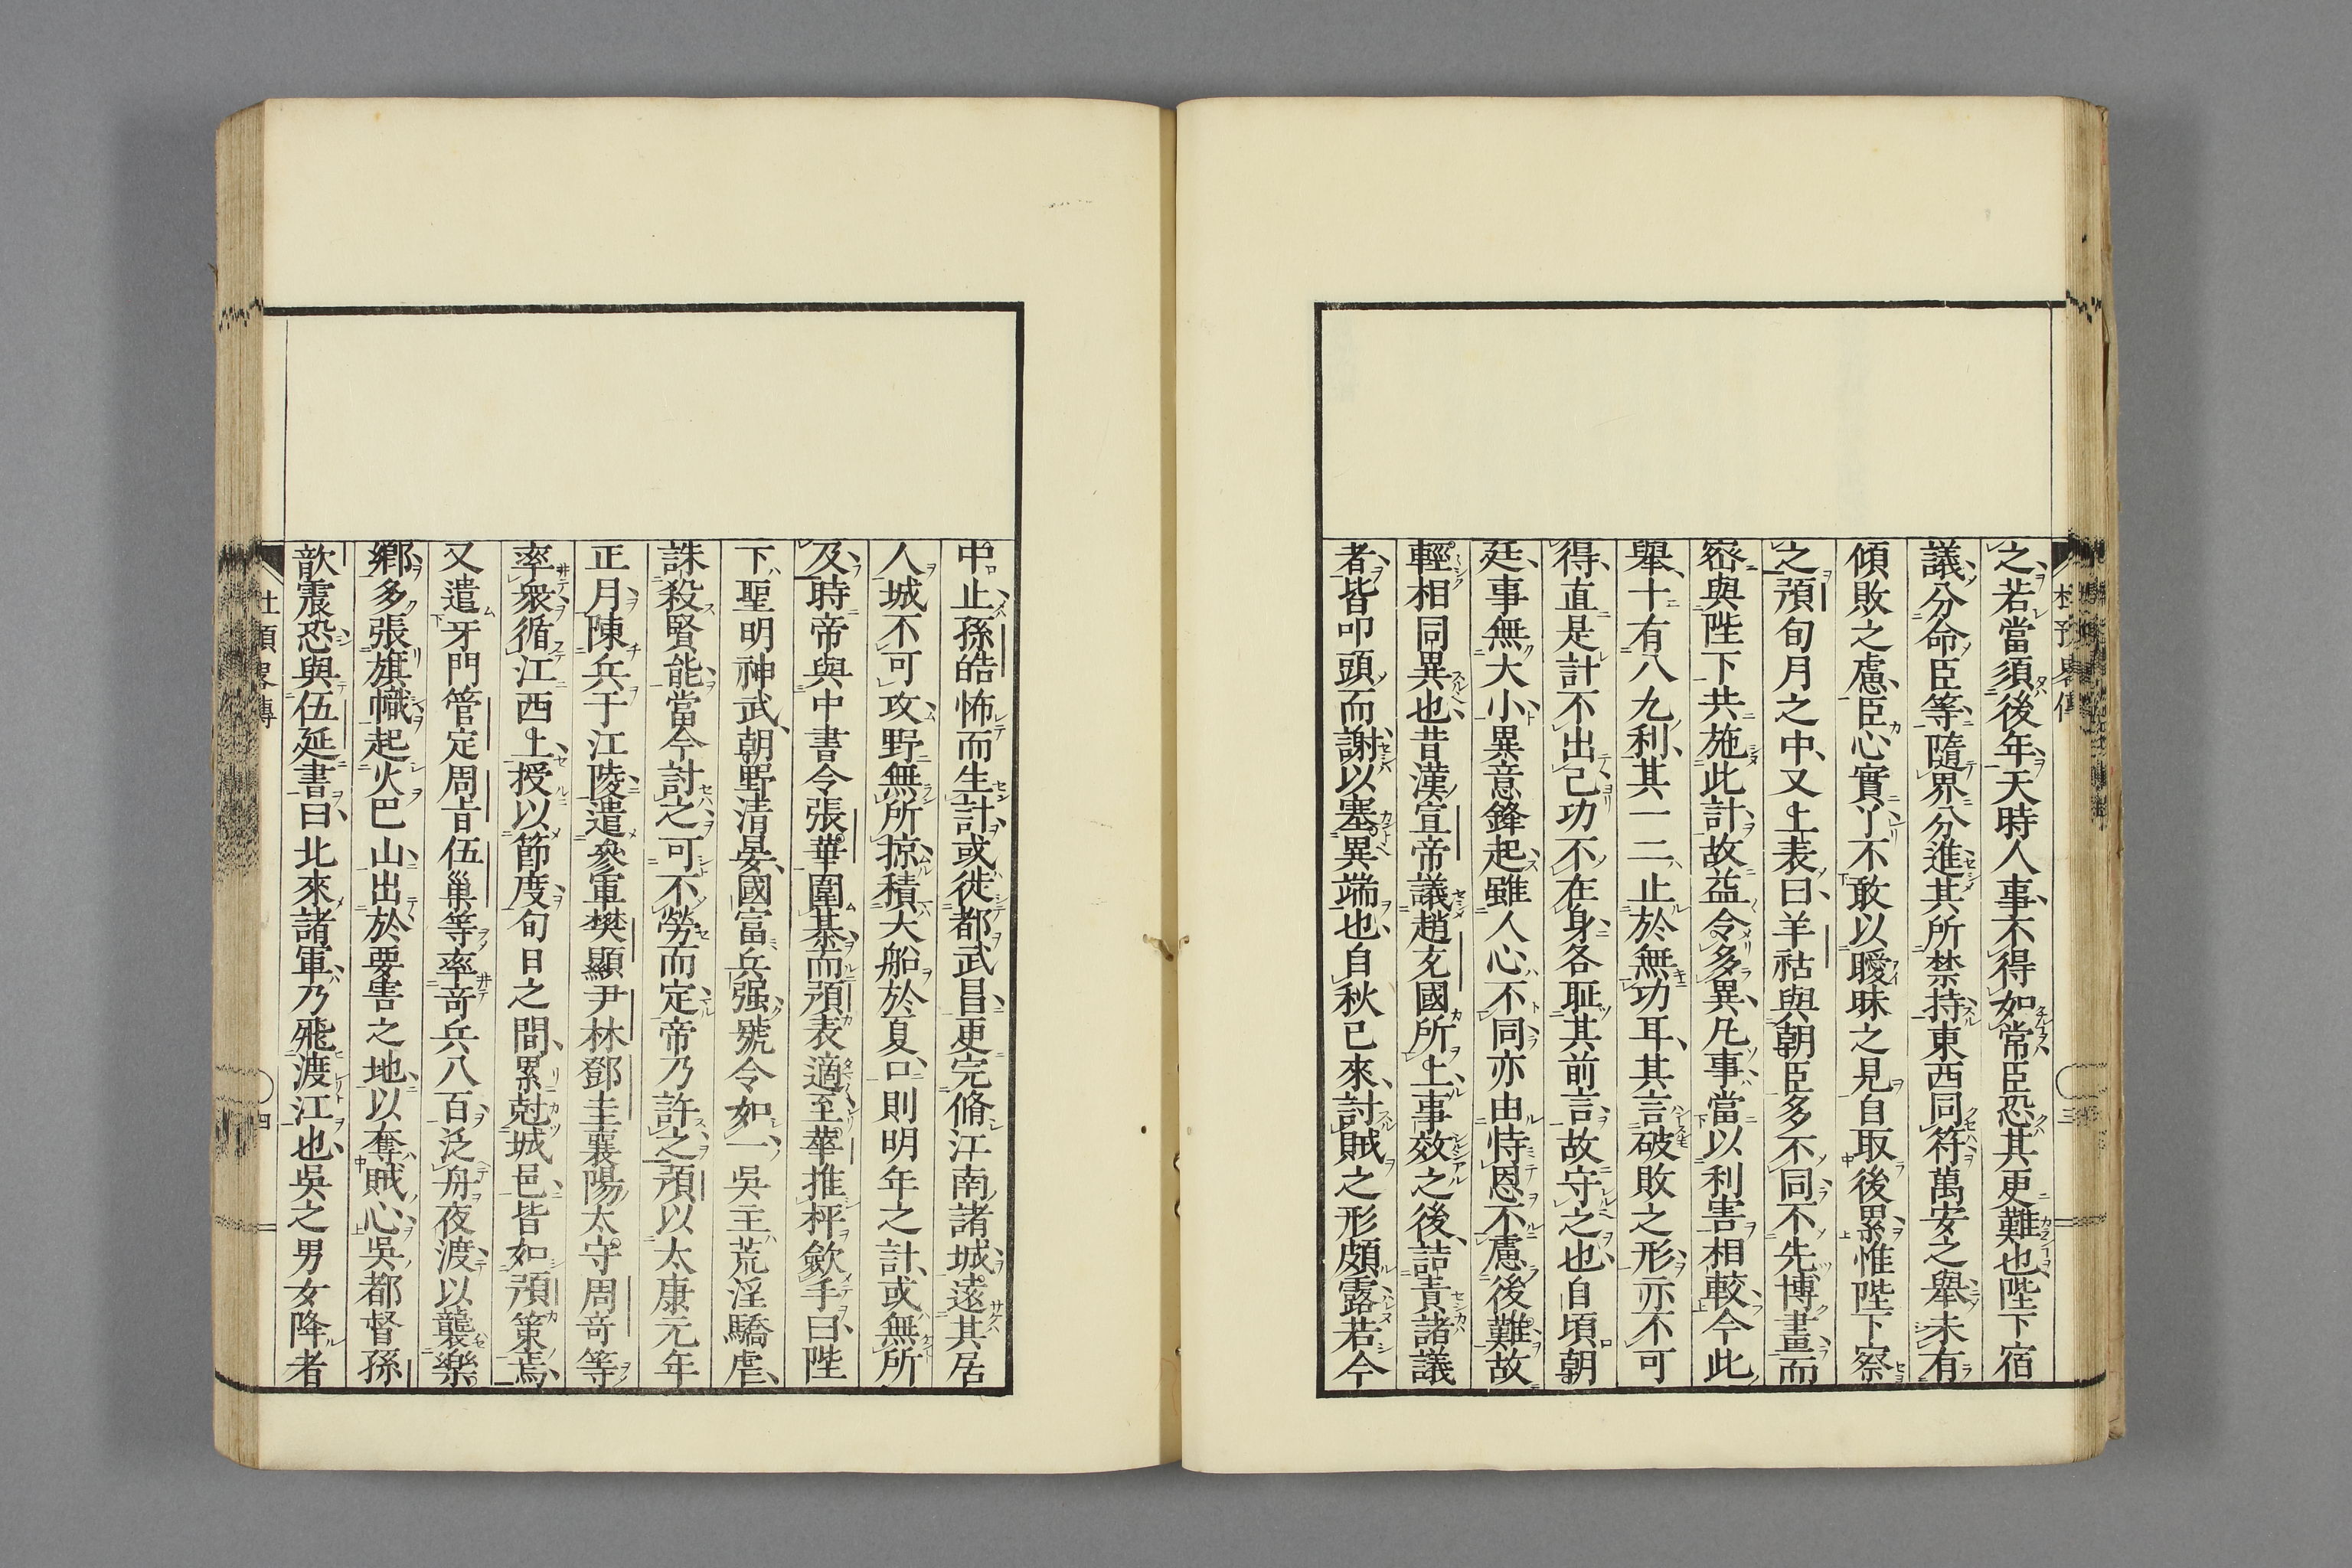 之若當須後年天時人事不得如常臣恐其更難也陛下宿
議分命臣等隨界分進其所禁持東西同符萬安之舉未有
傾敗之慮臣心實了不敢以曖昧之見自取後累惟陛下察
之預旬月之中又上表曰羊祜與朝臣多不同不先博畫而
宻與陛下共施此計故益令多異凡事當以利害相較今此
舉十有八九利其一二止於無功耳其言破敗之形亦不可
得直是計不出己功不在身各耻其前言故守之也自頃朝
廷事無大小異意鋒起雖人心不同亦由恃恩不慮後難故
輕相同異也昔漢宣帝議趙充國所上事效之後詰責諸議
者皆叩頭而謝以塞異端也自秋已來討賊之形頗露若今
中止孫皓怖而生計或徙都武昌更完脩江南諸城遠其居
人城不可攻野無所掠積大船於夏口則明年之計或無所
及時帝與中書令張華圍棊而預表適至華推枰斂手曰陛
下聖明神武朝野清晏國富兵强號令如一吳主荒淫驕虐
誅殺賢能當今討之可不勞而定帝乃許之預以太康元年
正月陳兵于江陵遣參軍樊顯尹林鄧圭襄陽太守周竒等
率衆循江西上授以節度旬日之間累尅城邑皆如預策焉
又遣牙門管定周旨伍巢等率竒兵八百泛舟夜渡以襲樂
鄉多張旗幟起火巴山出於要害之地以奪賊心吳都督孫
歆震恐與伍延書曰北來諸軍乃飛渡江也吳之男女降者
杜預畧傳
四